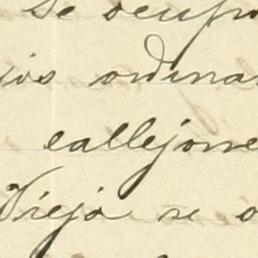 se ocup
ios ordina
callejone
Vieja se o